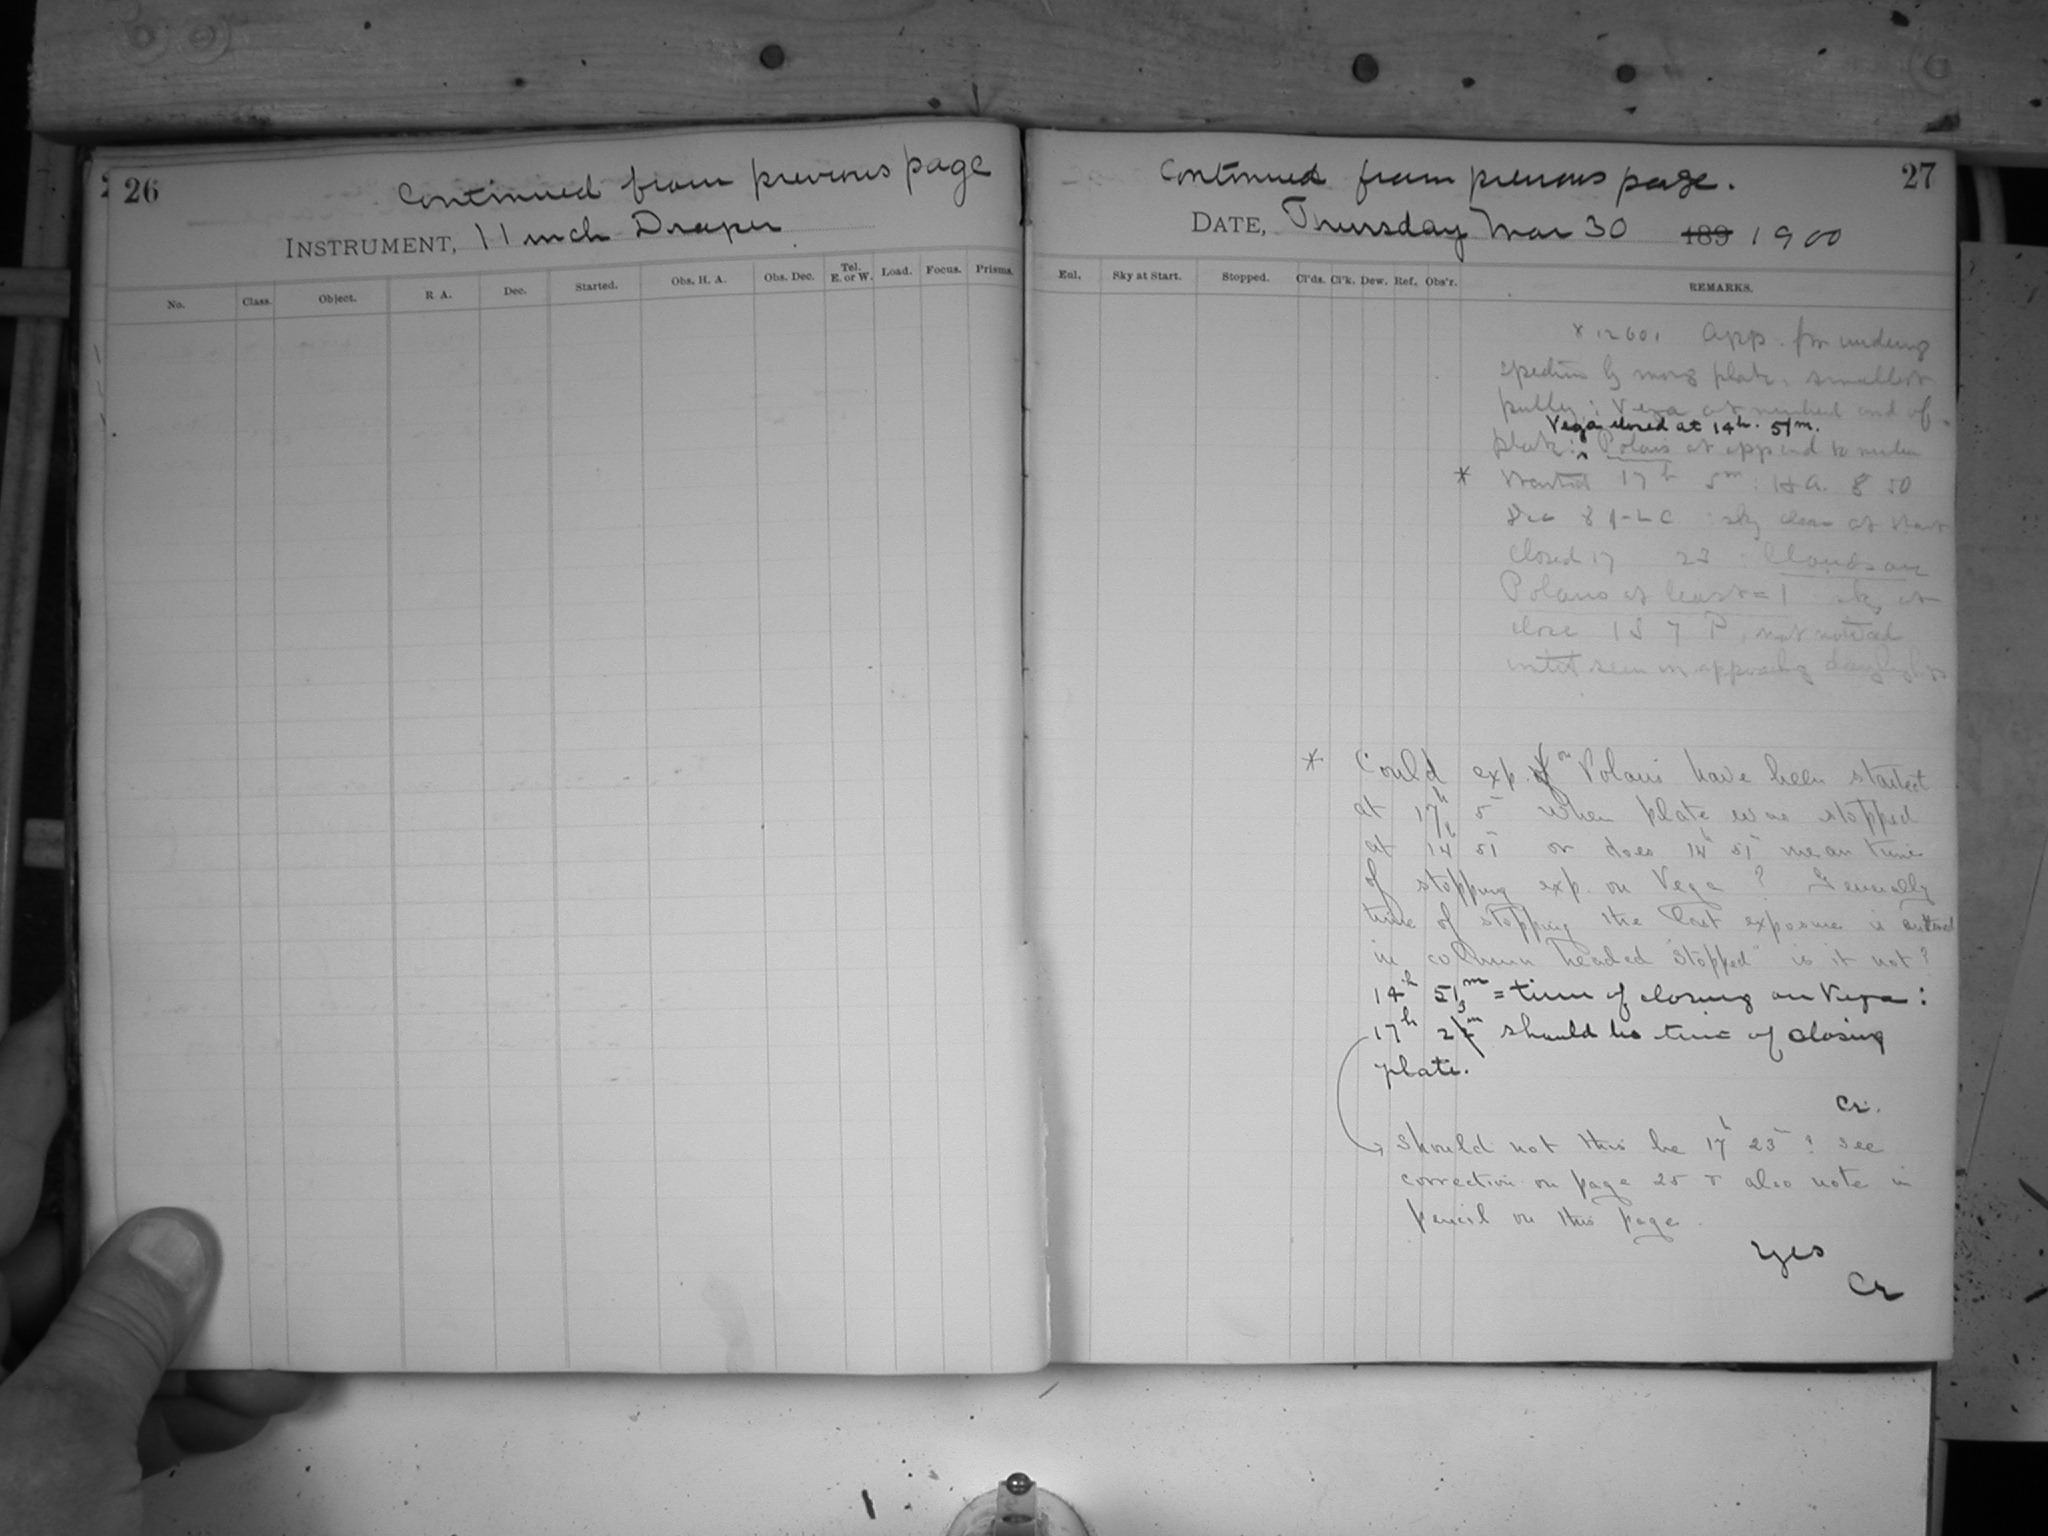 26
Continued from previous page
INSTRUMENT, 11 inch Draper
No. Class. Object. R. A. Dec. Started. Obs. H. A. Obs. Dec. Tel. E. or W. Load. Focus. Prisms.
Continued from previous page.
27
DATE, Thursday Mar 30 189 1900
Eul. Sky at Start. Stopped. Cl'ds. Cl'k. Dew. Ref. Obs'r. REMARKS.
App. for
by moving plate. smallest
pulley: Vega at end of
Vega closed at 14h. 51m.
plate: Polaris at opp end to
* Started 17h 5m: H A. 8 50
Dec sky clear at start
Closed 17 23 : Clouds on
Polaris at least = 1 sky at
close 1 S 7 P, not noticed
until seen in approaching daylight
* Could exp. on Polaris have been started
at 17h 5m when plate was stopped
at 14h 51 or does 14h 51m mean time
of stopping exp. on Vega? Generally
time of stopping the last exposure is entered
in column headed "Stopped" is it not?
14h 51m = time of closing on Vega:
17h 23m should be time of closing
plate.
Cr.
Should not this be 17h 23m? See
correction on page 25 & also note in
pencil on this page.
Yes
Cr